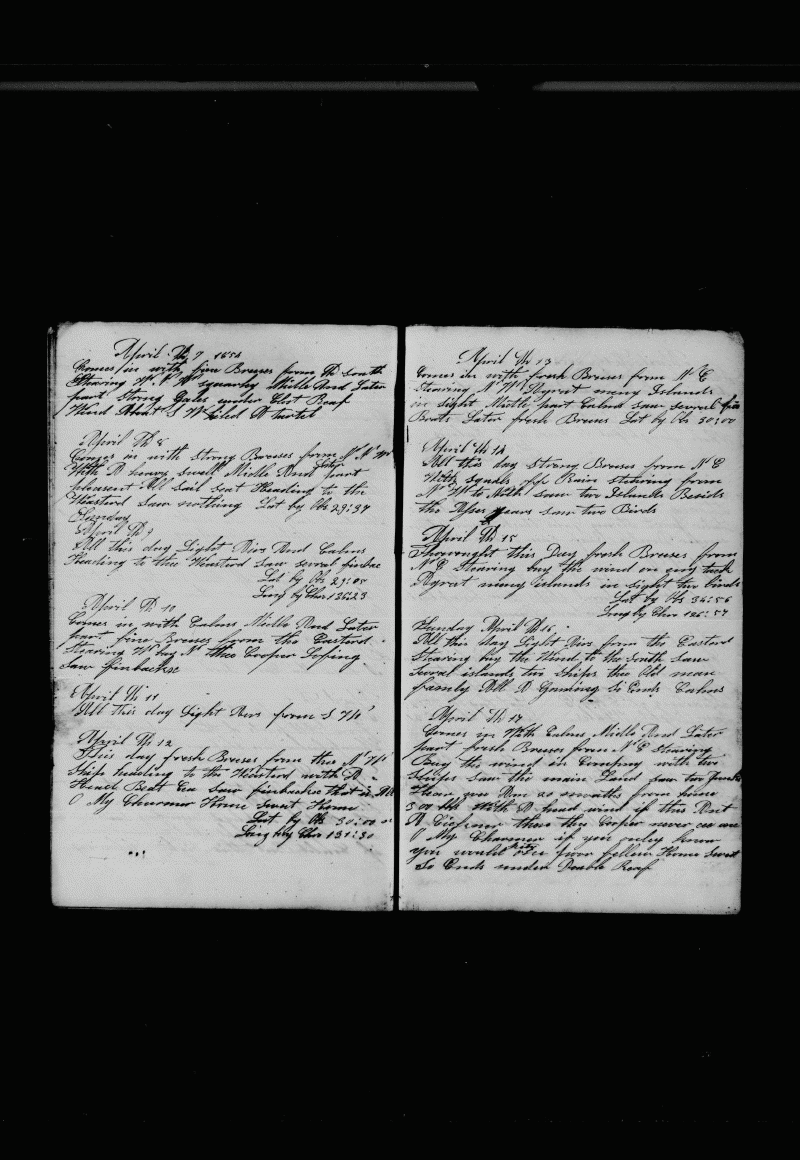 April Th 7 1854
Comes in with fine Breeses from Th south
Stearing W. N. W squarley Midle And Later
part Strong Gales under Clot Reaf
Wind About S W kiled A turtel
April Th 8
Comes in with Strong Breeses from N. N. W
With A heavy swell Midle And part
pleasent All sail seat Heading to the
Winsterd Saw nothing Lat by Obs 29:34
Sunday
April Th 9
All this day Light Airs And Calms
Heading to thee Winsterd saw serval finbac
Lat by Obs 29:05
Long by Chor 136:23
April Th 10
Comes in with Calms Midle And Later
part fine Breeses from the Easterd
Stearing W by N thee Cooper
Saw finbackse
April Th 11
All this day Light Airs from S W
April Th 12
This day fresh Breeses from thee N W
Ships heading to the Winsterd with A
Head Beat Cea Saw finbackse that is All
O My Charmer Home Sweat Home
Lat by Obs 30:00
Long by Chor 131:30
April Th 13
Comes in with fresh Breeses from N E
Stearing N W Agreat meny Islands
in sight Midle part Calms saw several fin
Boats Later fresh Breeses Lat by Obs 30:00
April Th 14
All this day Strong Breeses from N E
With squals off Rain stearing from
N. W to North saw two Islands Besids
the years saw two Birds
April Th 15
Throwought this Day fresh Breeses from
N E Stearing buy the wind on eny tack
Agreat meny islands in sight two birds
Lat by Obs 34:56
Long by Chor 126:57
Sunday April Th 16
All this day Light Airs from the Easterd
Stearing buy the Wind to the South Saw
Several islands two Ships the Old man
family All A So Ends Calms
April Th 17
Comes in With Calms Midle And Later
part fresh Breeses from N E Stearing
Buy the wind in Company with two
Ships saw the main Land saw two
from home
With A head wind if this Ant
A thare thee Coper never see one
O My Charmer if you only knew
you would pitty thee poor fellow Home Sweat
So Ends under Double Reaf